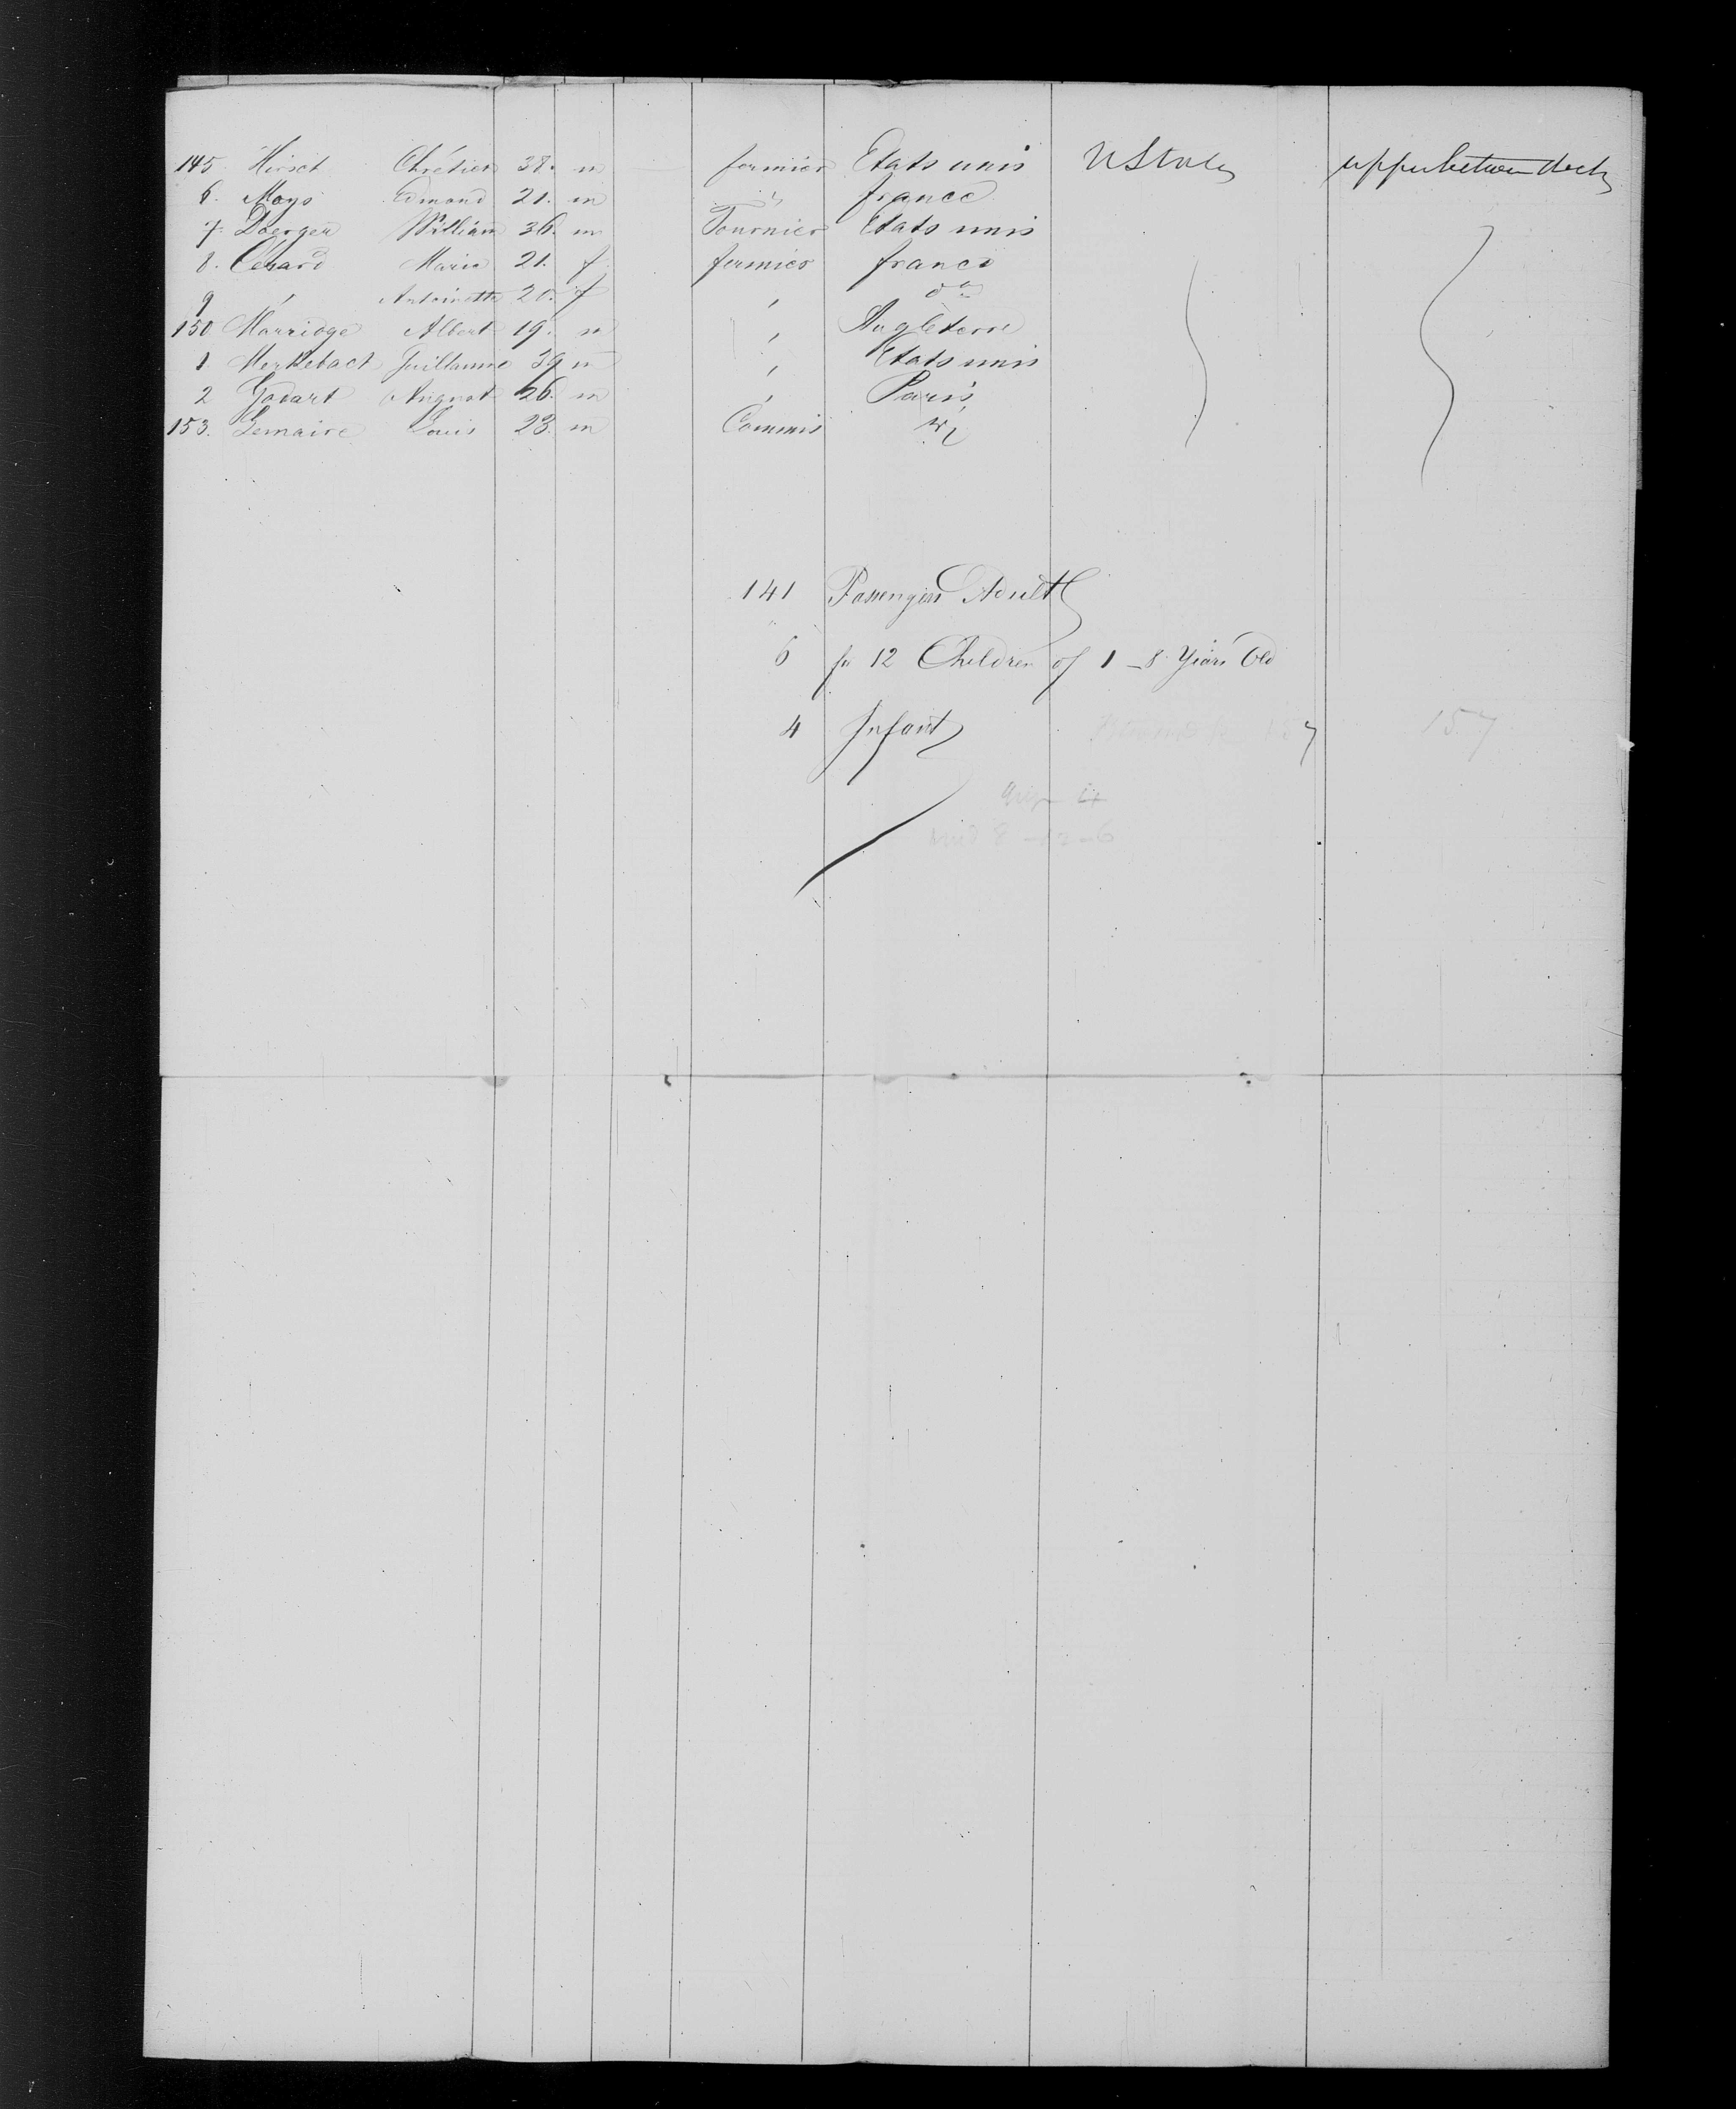 145. Hirsch Chrétien 38. m fermier Etats unis U States upper between decks
6. Mays Edmond 21. m " france
7. Doerger William 36. m Tournier Etats unis
8. Cenard Maria 21. f fermier france
9 " Antoinette 20. f " do
150 Marridge Albert 19. m " Angleterre
1 Merklebach Guillaume 39 m " Etats unis
2 Godart August 26. m " Paris
153. Lemaire Louis 23. m Commis
141 Passengers Adult
6 for 12 Children of 1 - 8 Years Old
4 Infant 157 157